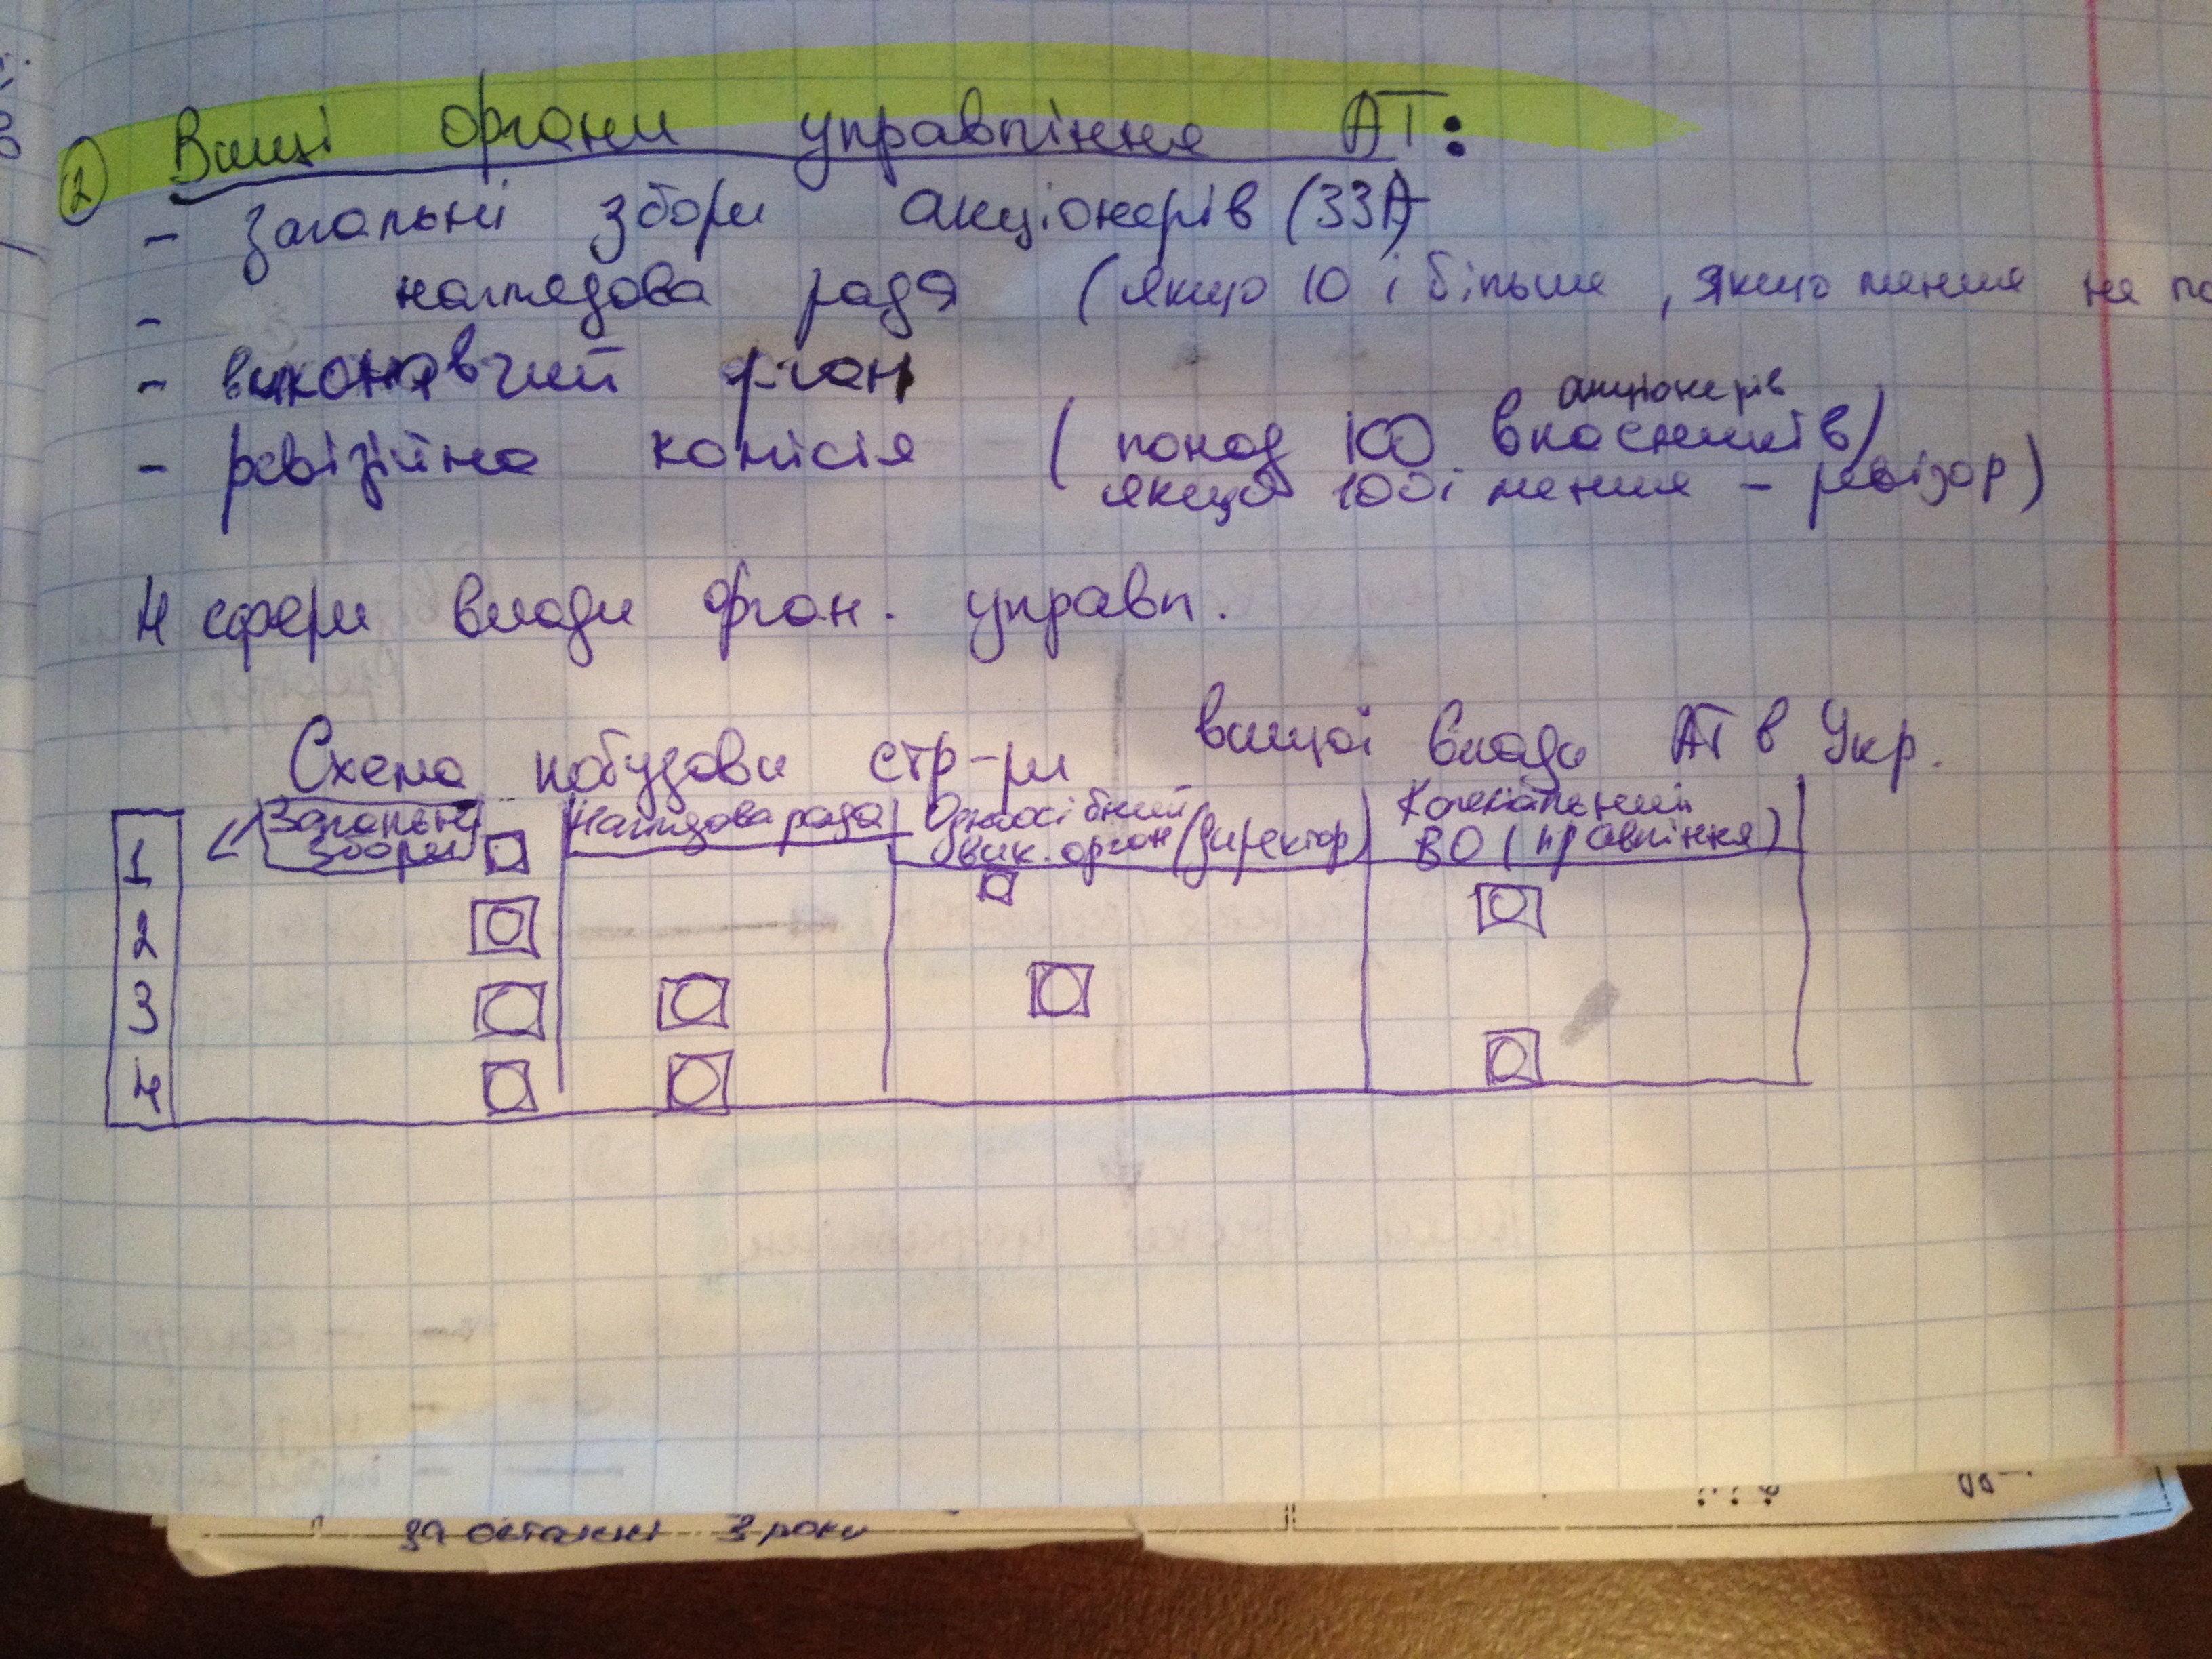 2 Вищі органи управління АТ:
- загальні збори акціонерів (ЗЗА)
- наглядова рада (якщо 10 і більше, якщо менше не
- виконавчий орган
акціонерів
- ревізійна комісія (понад 100 власників)
якщо 100 і менше - ревізор)
4 сфери влади орган. управл.
Схема побудови стр-ри вищої влади АТ в Укр.
Загальні збори Наглядова рада Одноосібний вик. орган (директор) Колегіальний ВО (правління)
1
2
3
4
за останні 3 роки